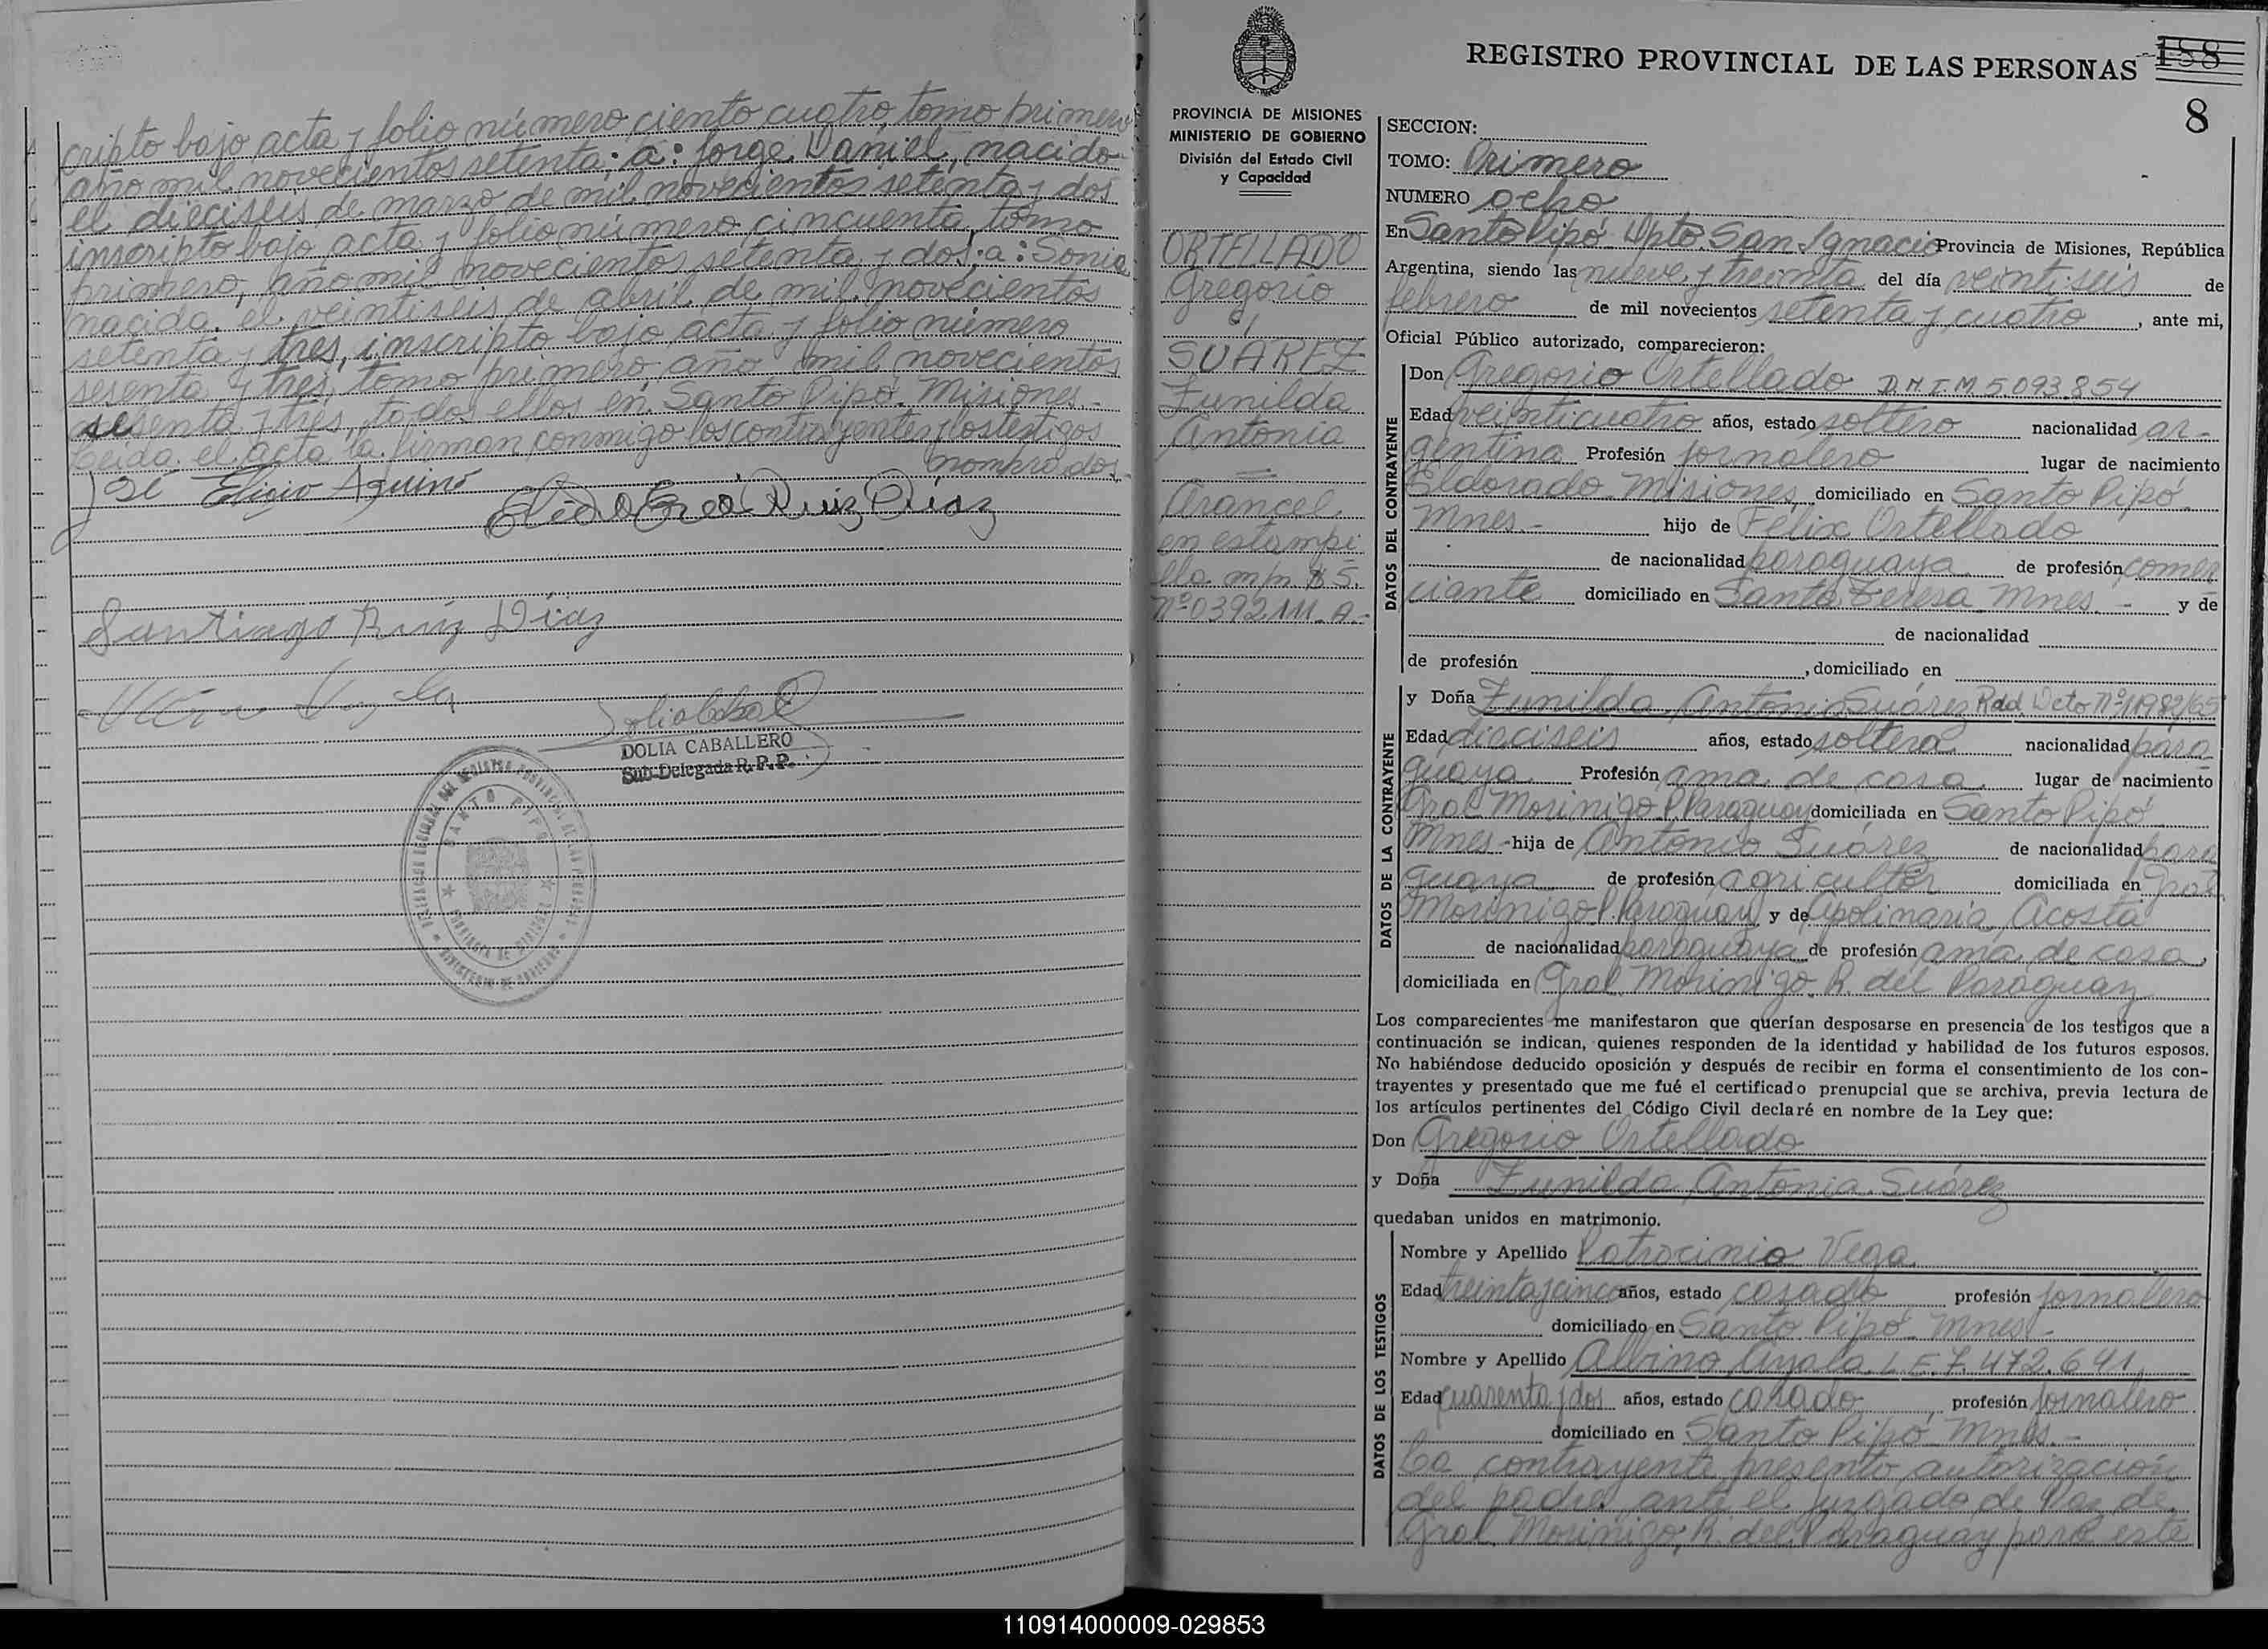 cripto bajo acta y folio número ciento cuatro, tomo primero
año mil novecientos setenta; a: Jorge Daniel, nacido
el dieciseis de marzo de mil novecientos setenta y dos
inscripto bajo acta y folio número cincuenta, tomo
primero, año mil novecientos setenta y dos; a: Sonia
nacida el veintiseis de abril de mil novecientos
setenta y tres, inscripto bajo acta y folio número
sesenta y tres, tomo primero, año mil novecientos
sesenta y tres, todos ellos en Santo Pipó. Misiones.-
Leida el acta la firman conmigo los contrayentes y los testigos
nombrados.
Elicio Aquino
Ruiz Diaz
Santiago Ruiz Diaz
DOLIA CABALLERO
Sub-Delegada R. P. P.
SANTO PIPO
REGISTRO PROVINCIAL DE LAS PERSONAS
188
8
PROVINCIA DE MISIONES
MINISTERIO DE GOBIERNO
División del Estado Civil
y Capacidad
ORTELLADO
Gregorio
c/
SUAREZ
Zunilda
Antonia
=
Arancel
en estampi
lla m/n $5.
Nº 0392111-A.-
SECCION:
TOMO: Primero
NUMERO ocho
En Santo Pipó Dpto. San Ignacio Provincia de Misiones, República
Argentina, siendo las nueve y treinta del día veintiseis de
febrero de mil novecientos setenta y cuatro, ante mi,
Oficial Público autorizado, comparecieron:
DATOS DEL CONTRAYENTE
Don Gregorio Ortellado D.N.I.M. 5.093.854
Edad veinticuatro años, estado soltero nacionalidad ar-
gentina Profesión jornalero lugar de nacimiento
Eldorado-Misiones, domiciliado en Santo Pipó
Mnes.- hijo de Felix Ortellado
de nacionalidad paraguaya de profesión comer
ciante domiciliado en Santa Teresa Mnes. - y de
de nacionalidad
de profesión , domiciliado en
DATOS DE LA CONTRAYENTE
y Doña Zunilda Antonia Suárez Rdd. Dcto Nº 11982/65
Edad dieciseis años, estado soltera nacionalidad para-
guaya Profesión ama de casa lugar de nacimiento
Gral Morinigo P. Paraguay domiciliada en Santo Pipó
Mnes - hija de Antonio Suárez de nacionalidad para
guaya de profesión agricultor domiciliada en Gral.
Morinigo P. Paraguay y de Apolinaria Acosta
de nacionalidad paraguaya de profesión ama de casa,
domiciliada en Gral. Morinigo. R. del Paraguay
Los comparecientes me manifestaron que querían desposarse en presencia de los testigos que a
continuación se indican, quienes responden de la identidad y habilidad de los futuros esposos.
No habiéndose deducido oposición y después de recibir en forma el consentimiento de los con-
trayentes y presentado que me fué el certificado prenupcial que se archiva, previa lectura de
los artículos pertinentes del Código Civil declaré en nombre de la Ley que:
Don Gregorio Ortellado
y Doña Zunilda Antonia Suárez
quedaban unidos en matrimonio.
DATOS DE LOS TESTIGOS
Nombre y Apellido Patrocinio Vega
Edad treinta y cinco años, estado casado profesión jornalero
domiciliado en Santo Pipó - Mnes.-
Nombre y Apellido Albino Ayala L.E. 7.472.641
Edad cuarenta y dos años, estado casado, profesión jornalero
domiciliado en Santo Pipó Mnes.-
La contrayente presentó autorización
del padre ante el Juzgado de Paz de
Gral. Morinigo, R. del Paraguay para este
110914000009-029853